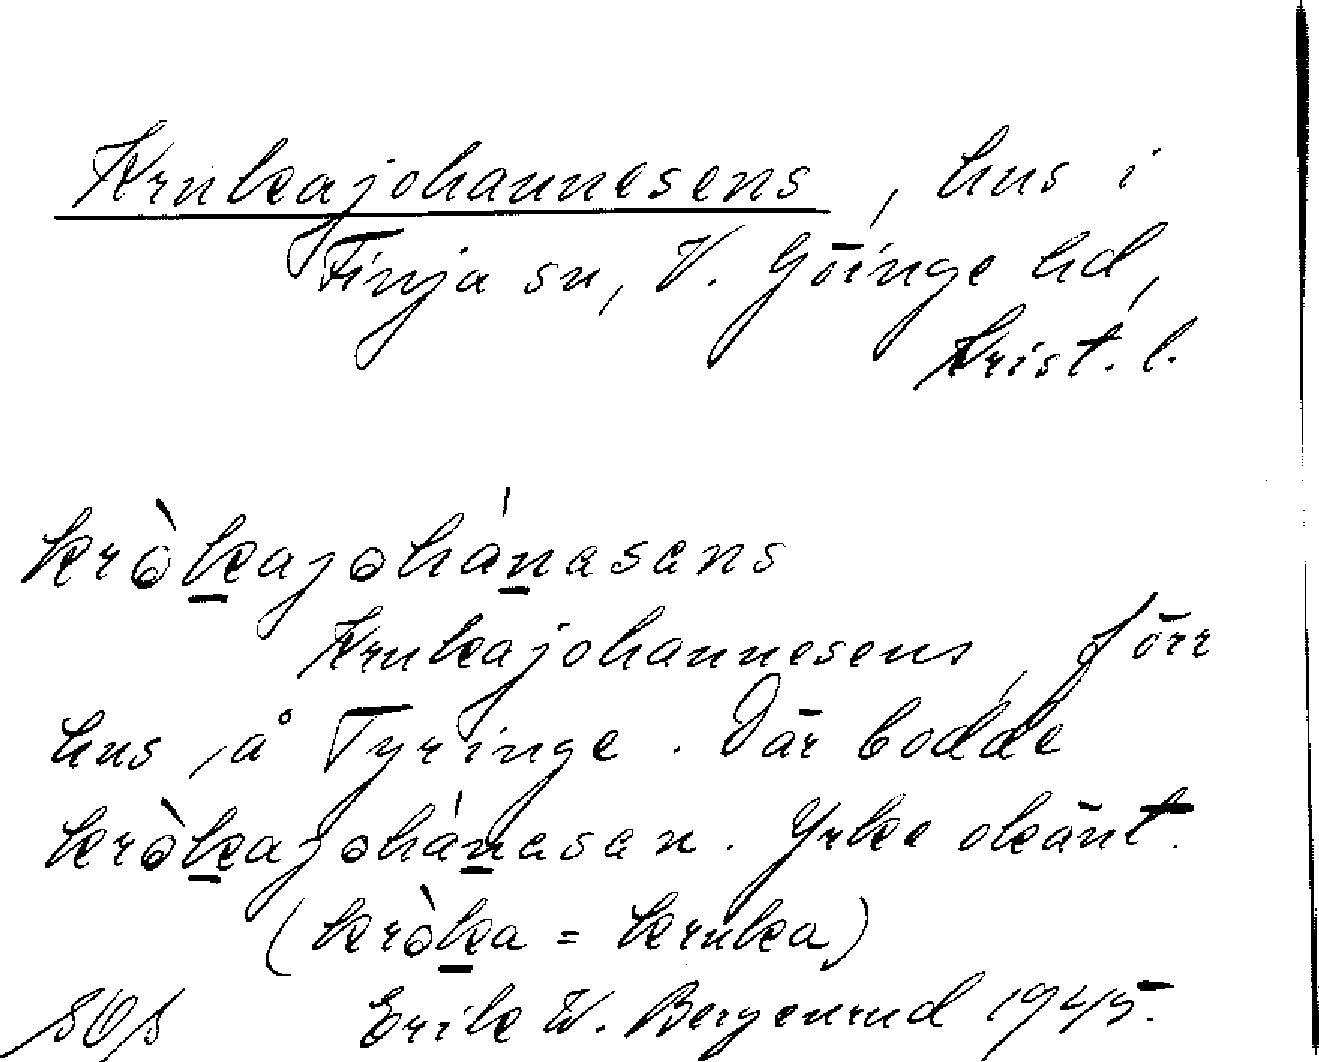 Krukajohannesens, hus i
Finja sn, V. Göinge hd,
Krist. l.
kròkajohánasens
Krukajohannesens, förr
hus å Tyringe. Där bodde
kròkajohánasan. Yrke okänt.
(kròka = kruka)
Erik W. Bergenrud 1945.